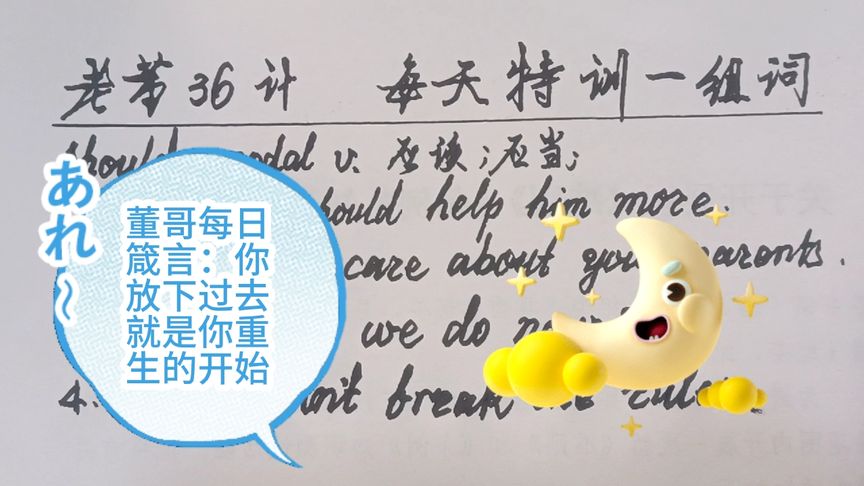 老董36计 每天特训一组词
should modal v. 应该；应当；
should help him more.
care about your parents.
we do
4. break the rules
あれ～
董哥每日
箴言：你
放下过去
就是你重
生的开始